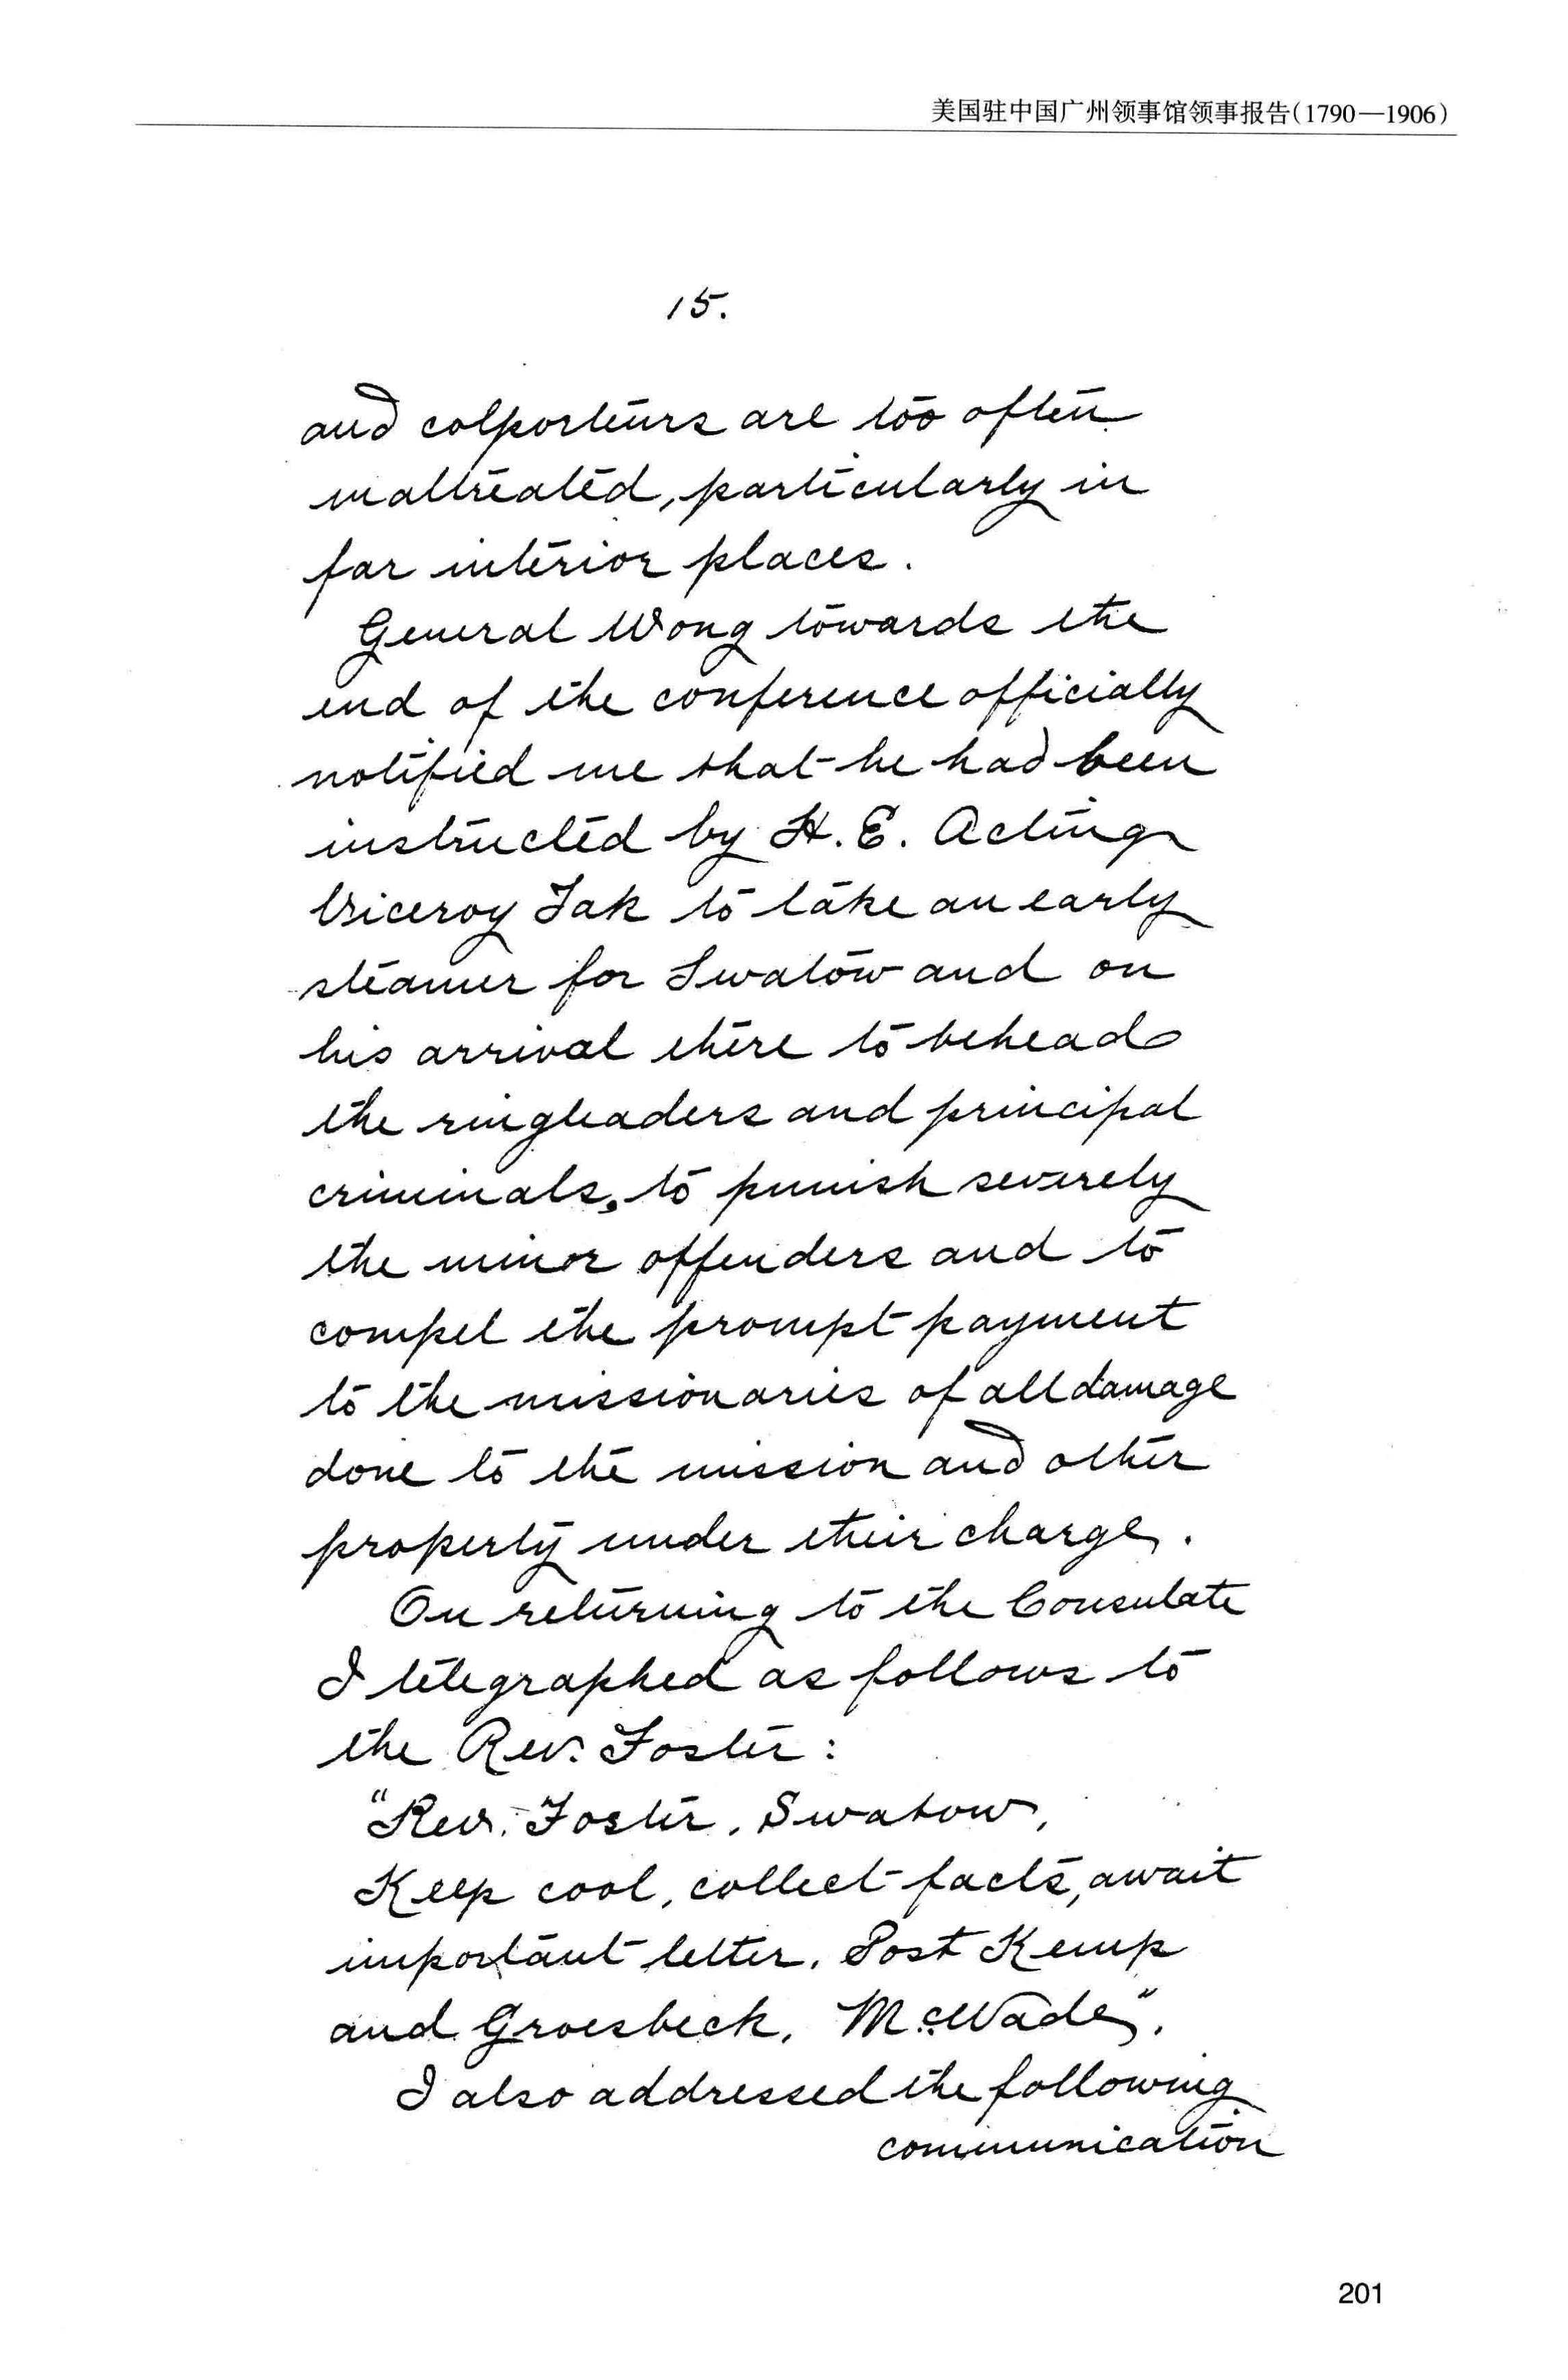 美国驻中国广州领事馆领事报告(1790—1906)
15.
and colporteurs are too often
maltreated, particularly in
far interior places.
General Wong towards the
end of the conference officially
notified me that he had been
instructed by H. E. Acting
Viceroy Tak to take an early
steamer for Swatow and on
his arrival there to behead
the ringleaders and principal
criminals, to punish severely
the minor offenders and to
compel the prompt payment
to the missionaries of all damage
done to the mission and other
property under their charge.
On returning to the Consulate
I telegraphed as follows to
the Rev. Foster:
"Rev. Foster, Swatow,
Keep cool, collect facts, await
important letter. Post Kemp
and Groesbeck. McWade".
I also addressed the following
communication
201